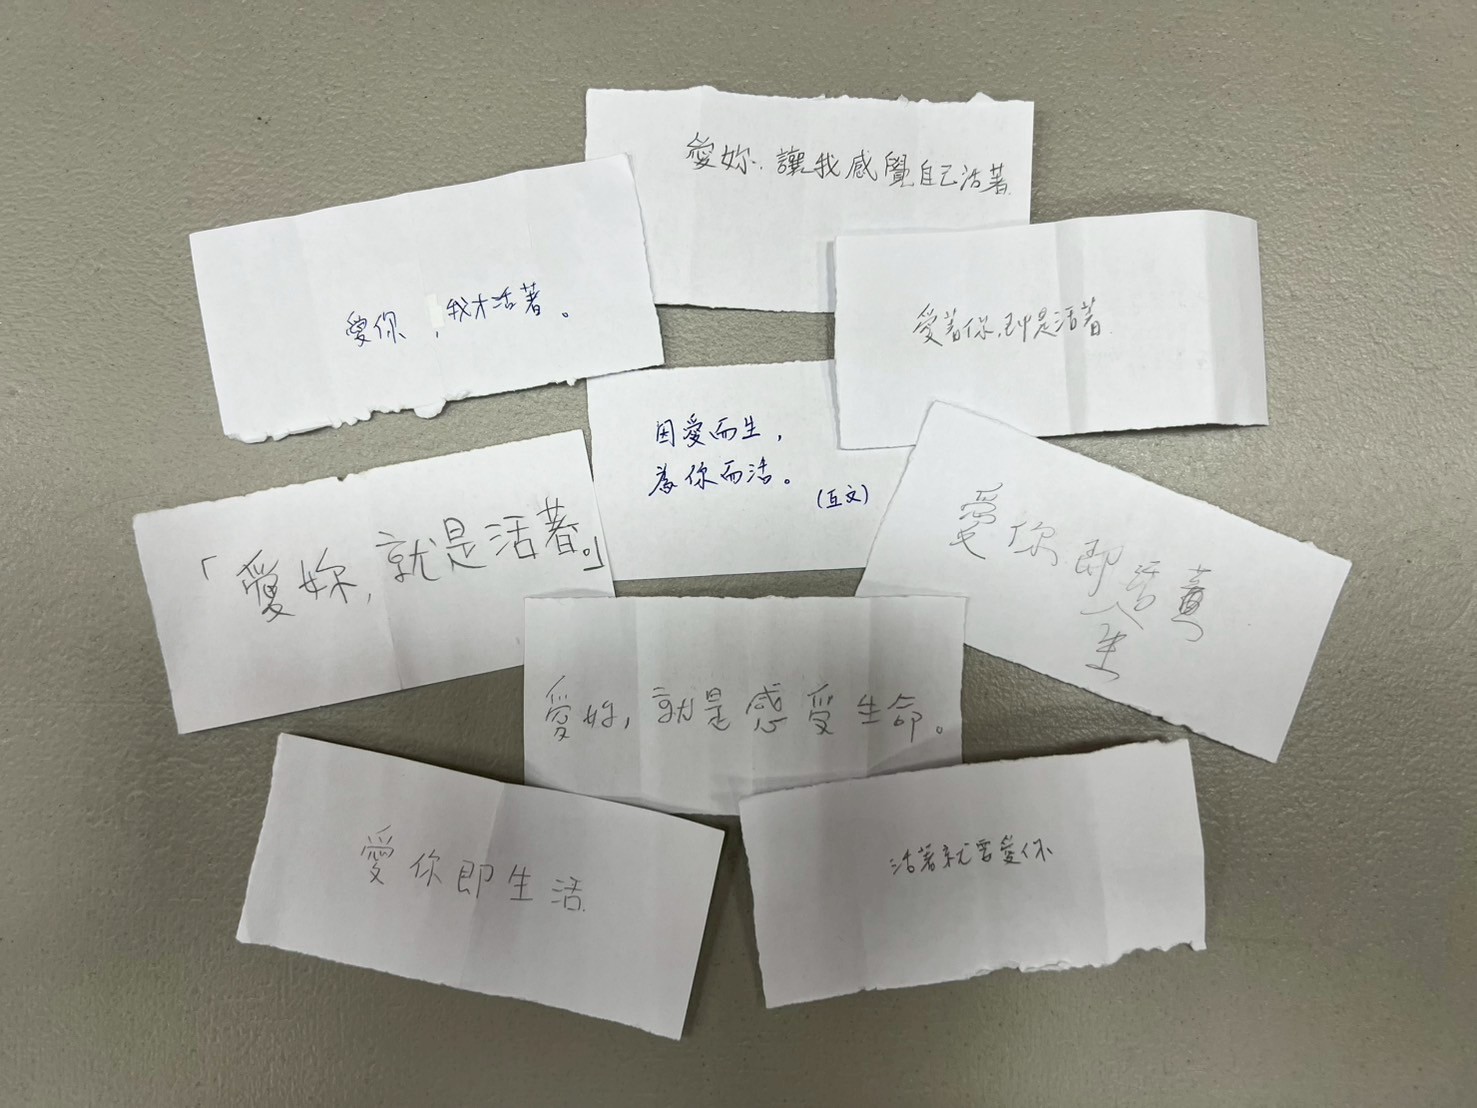 愛妳，讓我感覺自己活著
愛你，我才活著。
愛著你，即是活著
因愛而生，
為你而活。
(互文)
「愛妳，就是活著。」
愛你即活著
人生
愛妳，就是感受生命。
愛你即生活
活著就要愛你